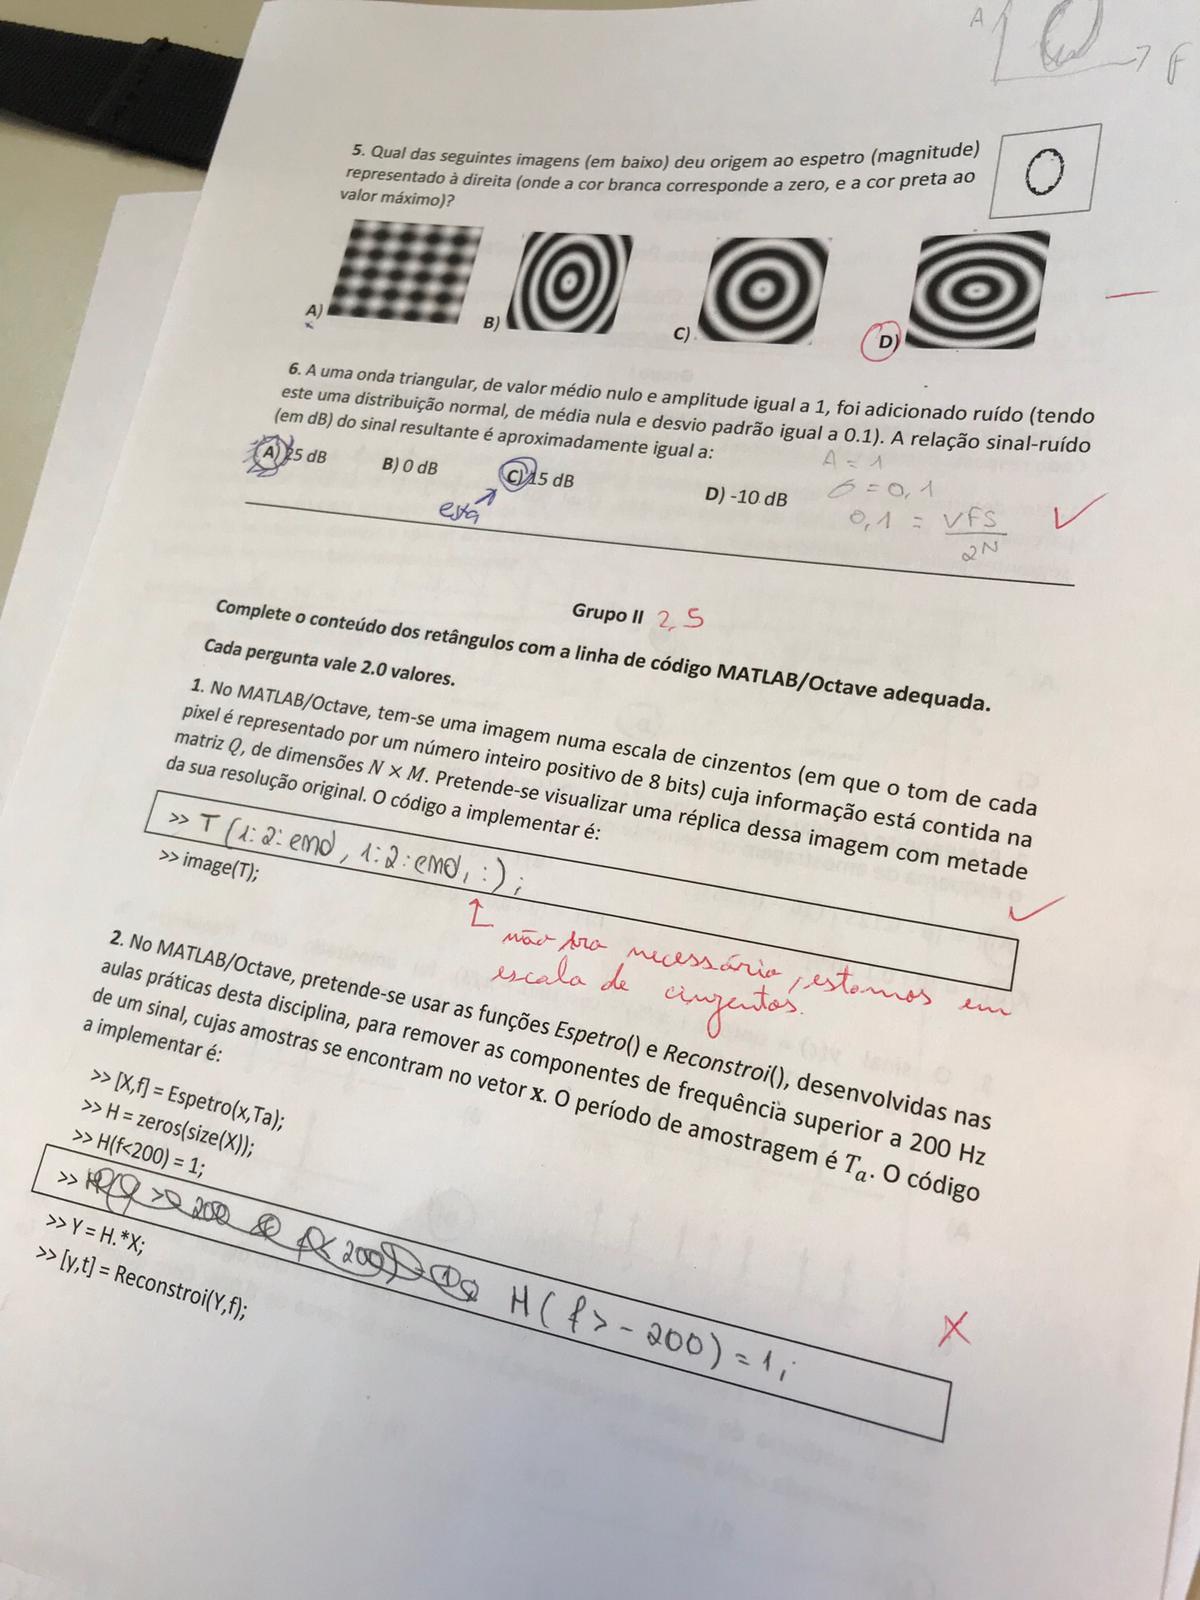 A
F
5. Qual das seguintes imagens (em baixo) deu origem ao espetro (magnitude)
representado à direita (onde a cor branca corresponde a zero, e a cor preta ao
valor máximo)?
A)
B)
C)
D)
6. A uma onda triangular, de valor médio nulo e amplitude igual a 1, foi adicionado ruído (tendo
este uma distribuição normal, de média nula e desvio padrão igual a 0.1). A relação sinal-ruído
(em dB) do sinal resultante é aproximadamente igual a:
A) 25 dB
B) 0 dB
C) 15 dB
D) -10 dB
esta
A = 1
σ = 0,1
0,1 = VFS
2^N
Grupo II 2,5
Complete o conteúdo dos retângulos com a linha de código MATLAB/Octave adequada.
Cada pergunta vale 2.0 valores.
1. No MATLAB/Octave, tem-se uma imagem numa escala de cinzentos (em que o tom de cada
pixel é representado por um número inteiro positivo de 8 bits) cuja informação está contida na
matriz Q, de dimensões N × M. Pretende-se visualizar uma réplica dessa imagem com metade
da sua resolução original. O código a implementar é:
>> T (1:2:end, 1:2:end, :);
>> image(T);
não era necessário, estamos em
escala de cinzentos.
2. No MATLAB/Octave, pretende-se usar as funções Espetro() e Reconstroi(), desenvolvidas nas
aulas práticas desta disciplina, para remover as componentes de frequência superior a 200 Hz
de um sinal, cujas amostras se encontram no vetor x. O período de amostragem é Ta. O código
a implementar é:
>> [X,f] = Espetro(x,Ta);
>> H = zeros(size(X));
>> H(f<200) = 1;
>> H(f>-200)=1;
>> Y = H.*X;
>> [y,t] = Reconstroi(Y,f);